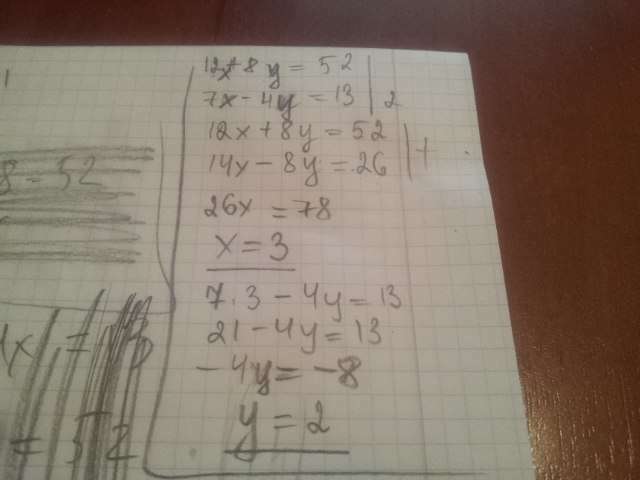 12x+8y = 52
7x-4y = 13 | 2
12x+8y = 52
14x-8y = 26 | +
26x = 78
x = 3
7.3 - 4y = 13
21 - 4y = 13
-4y = -8
y = 2
8 = 52
= 52